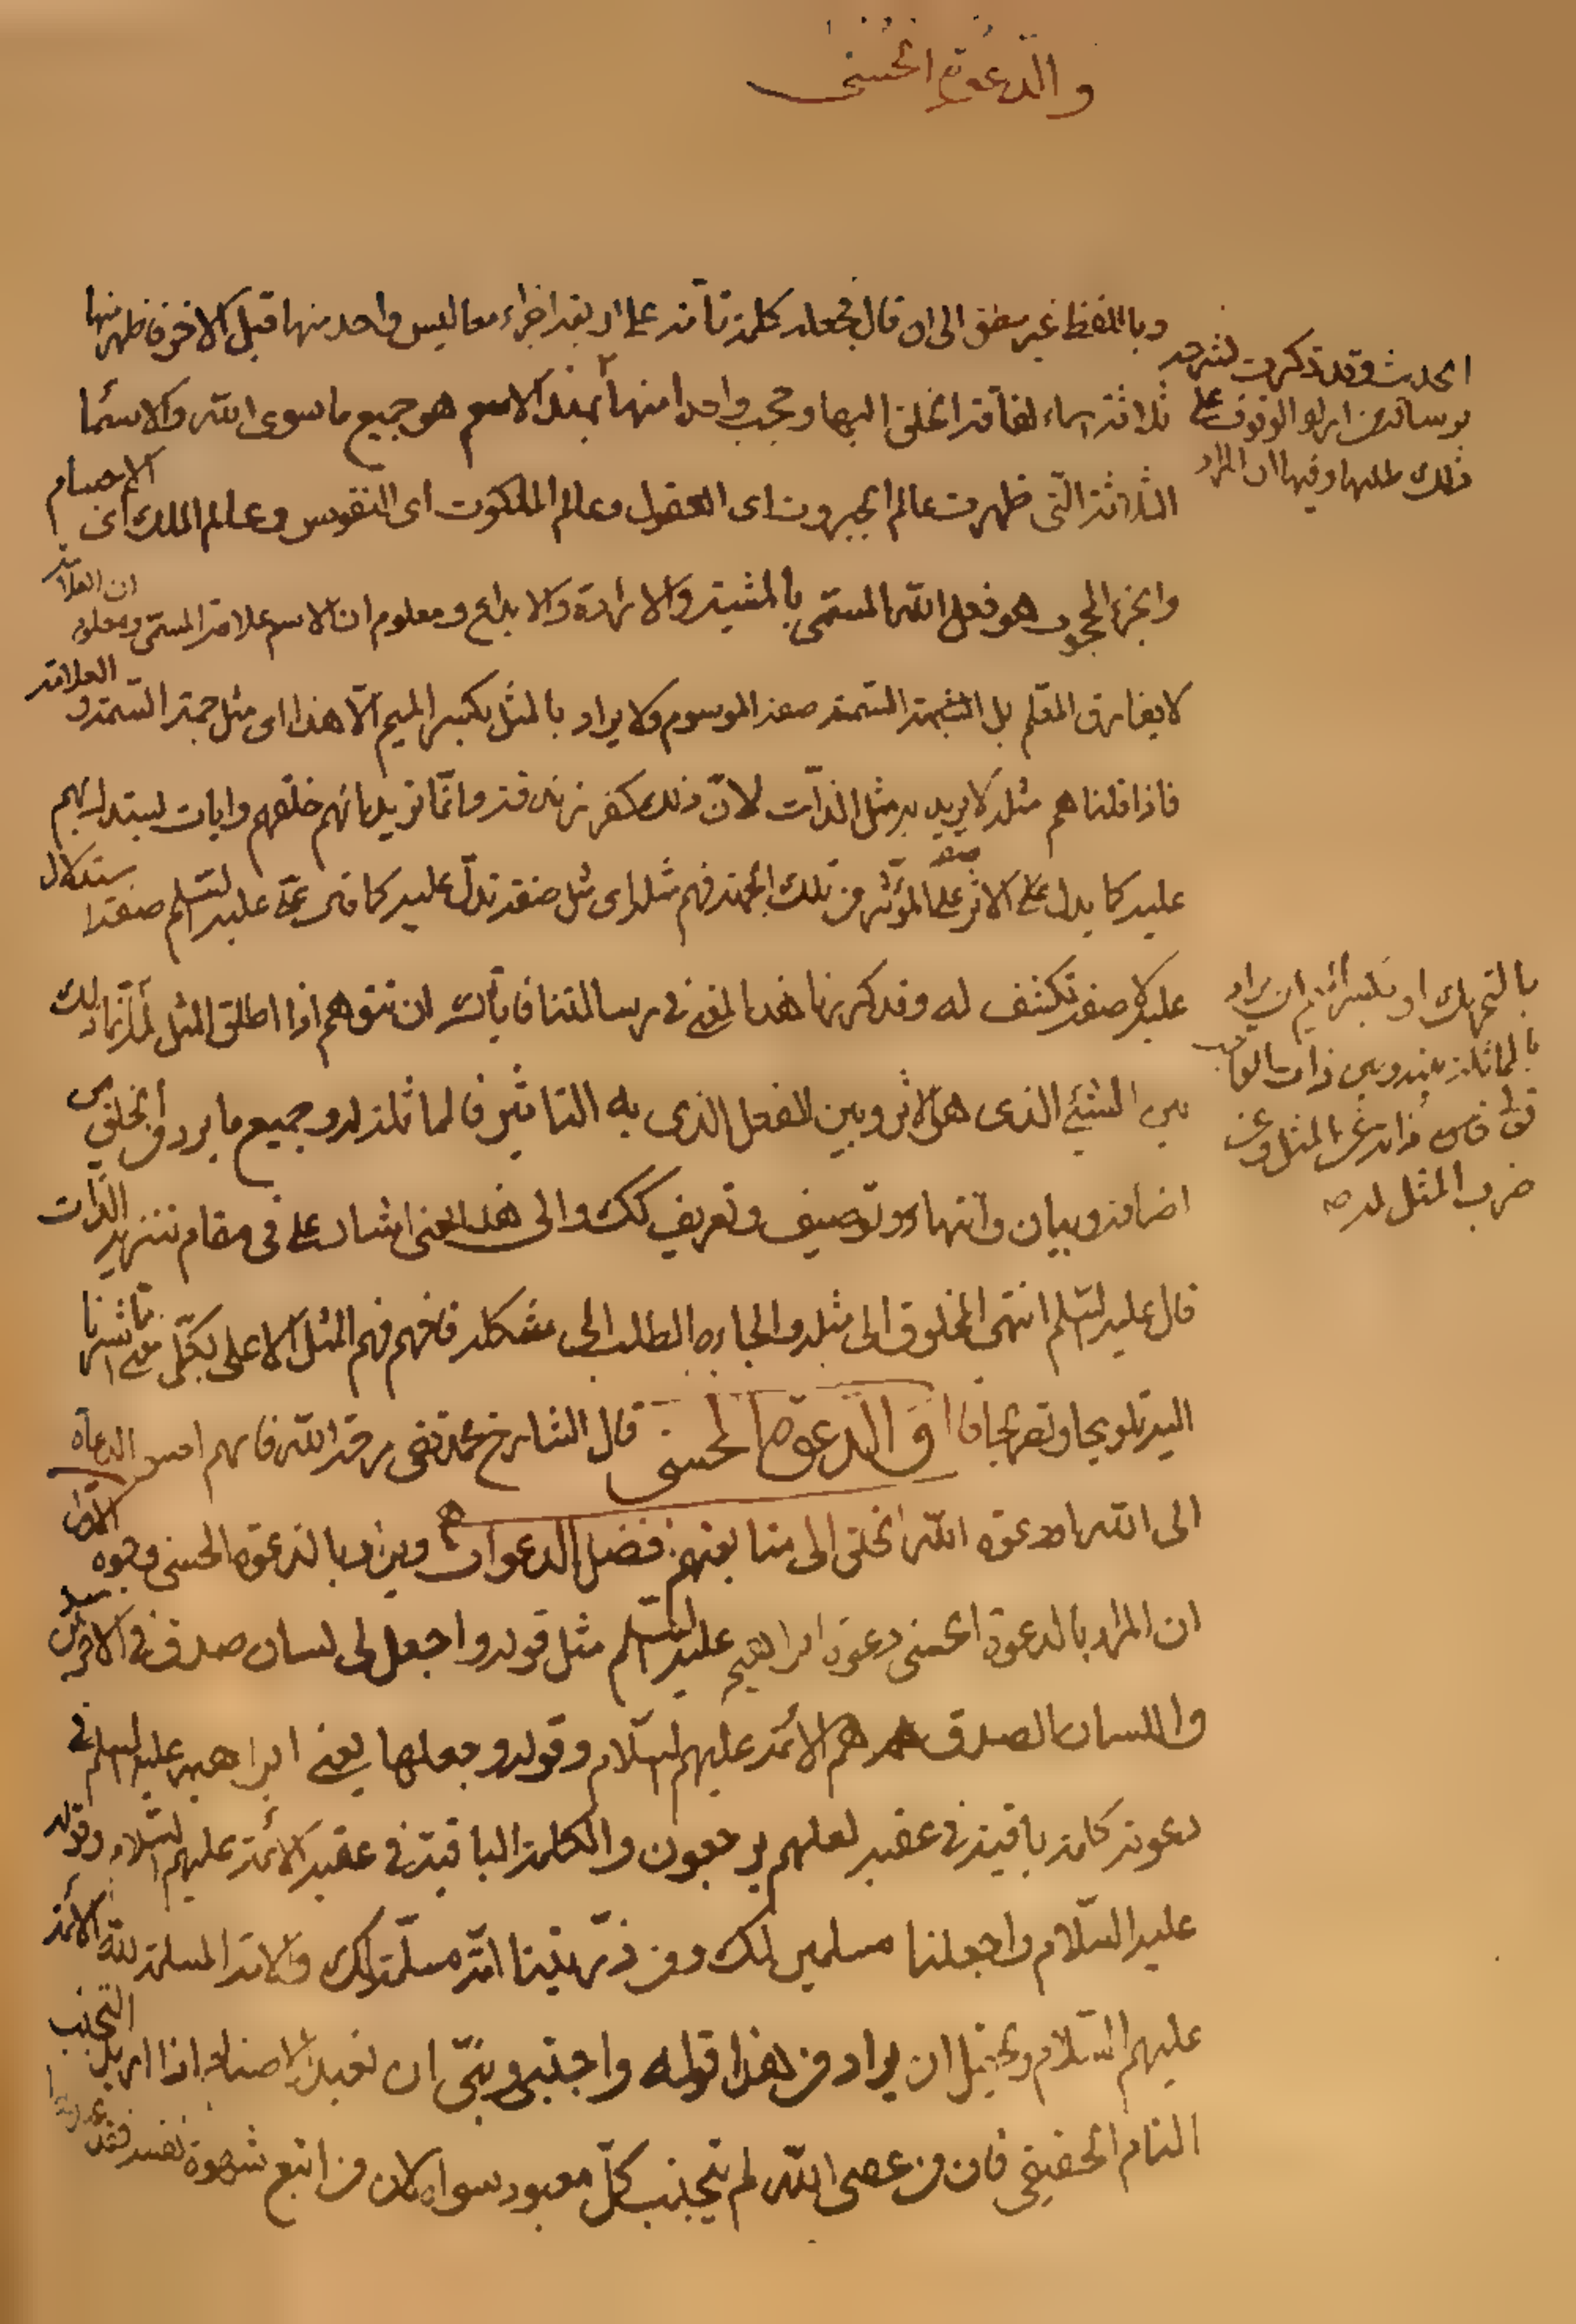 والدعوة الحسنى
وباللفظ غير منطق الى ان قال فجعله كلمة تامة على اربعة اجزاء معا ليس واحد منها قبل الاخر فاظهر منها
ثلاثة اسماء لفاقة الخلق اليها وحجب واحدا منها فهذا الاسم هو جميع ما سوى الله والاسماء
الثلاثة التى ظهرت عالم الجبروت اى العقول وعالم الملكوت اى النفوس وعالم الملك اى الاجسام
والجزء المحجوب هو فعل الله المسمى بالمشية والارادة والابداع ومعلوم ان الاسم علامة المسمى ومعلوم ان العلامة
لا يفارق المعلم بل السمة صفة الموسوم ولا يراد بالمثل بكسر الميم الا هذا اى مثل جهة السمة والعلامة
فاذا قلنا هم مثله لا يريد به مثل الذات لان ذلك كفر وزندقة وانما نريد انهم خلقهم وايات ليستدل بهم
عليه كما يدل على الاثر على المؤثر من تلك الجهة فهم مثله اى مثل صفة تدل عليه كما قال على عليه السلم صفة استدلال
عليه لا صفة تكشف له وقد كررنا هذا المعنى فى رسائلنا فاياك ان تتوهم اذا اطلق المثل
بين الشئ الذى هو الاثر وبين الفعل الذى به التاثير فالمماثلة له وجميع ما يرد من الخلق
اضافة وبيان وانتهاء وتوصيف وتعريف كك والى هذا المعنى اشار على فى مقام تنزيه الذات
قال عليه السلم انتهى المخلوق الى مثله والجاه الطلب الى شكله فافهم فهم المثل الاعلى بكل معنى مما اشرنا
اليه تلويحا وتصريحا قال والدعوة الحسنى قال الشارح محمد تقى رحمه الله فانهم الدعاة
الى الله او دعوة الله الخلق الى متابعتهم افضل الدعوات ويراد بالدعوة الحسنى وجوه الاول
ان المراد بالدعوة الحسنى دعوة ابراهيم عليه السلم مثل قوله واجعل لى لسان صدق فى الاخرين
واللسان الصدق هم الائمة عليهم السلام وقوله وجعلها يعنى ابراهيم عليه السلم فى
دعوته كلمة باقية فى عقبه لعلهم يرجعون والكلمة الباقية فى عقبه الائمة عليهم السلام وقوله
عليه السلام واجعلنا مسلمين لك ومن ذريتنا امة مسلمة لك والامة المسلمة لله الائمة
عليهم السلام ويحتمل ان يراد من هذا قوله واجنبنى وبنى ان نعبد الاصنام اذا اريد التجنب
التام الحقيقى فان من عصى الله لم يتجنب كل معبود سواه لان من اتبع شهوة نفسه فقد عبدها
الحديث وقد ذكرت لشرحه
رسالة من اراد الوقوف على
ذلك طلبها وفيها ان المراد
بالتحريك او بكسر الميم ان يراد
بالمماثلة بينه وبين ذات الواجب
تعالى فان ذاته عن المثل وعن
ضرب المثل له صح